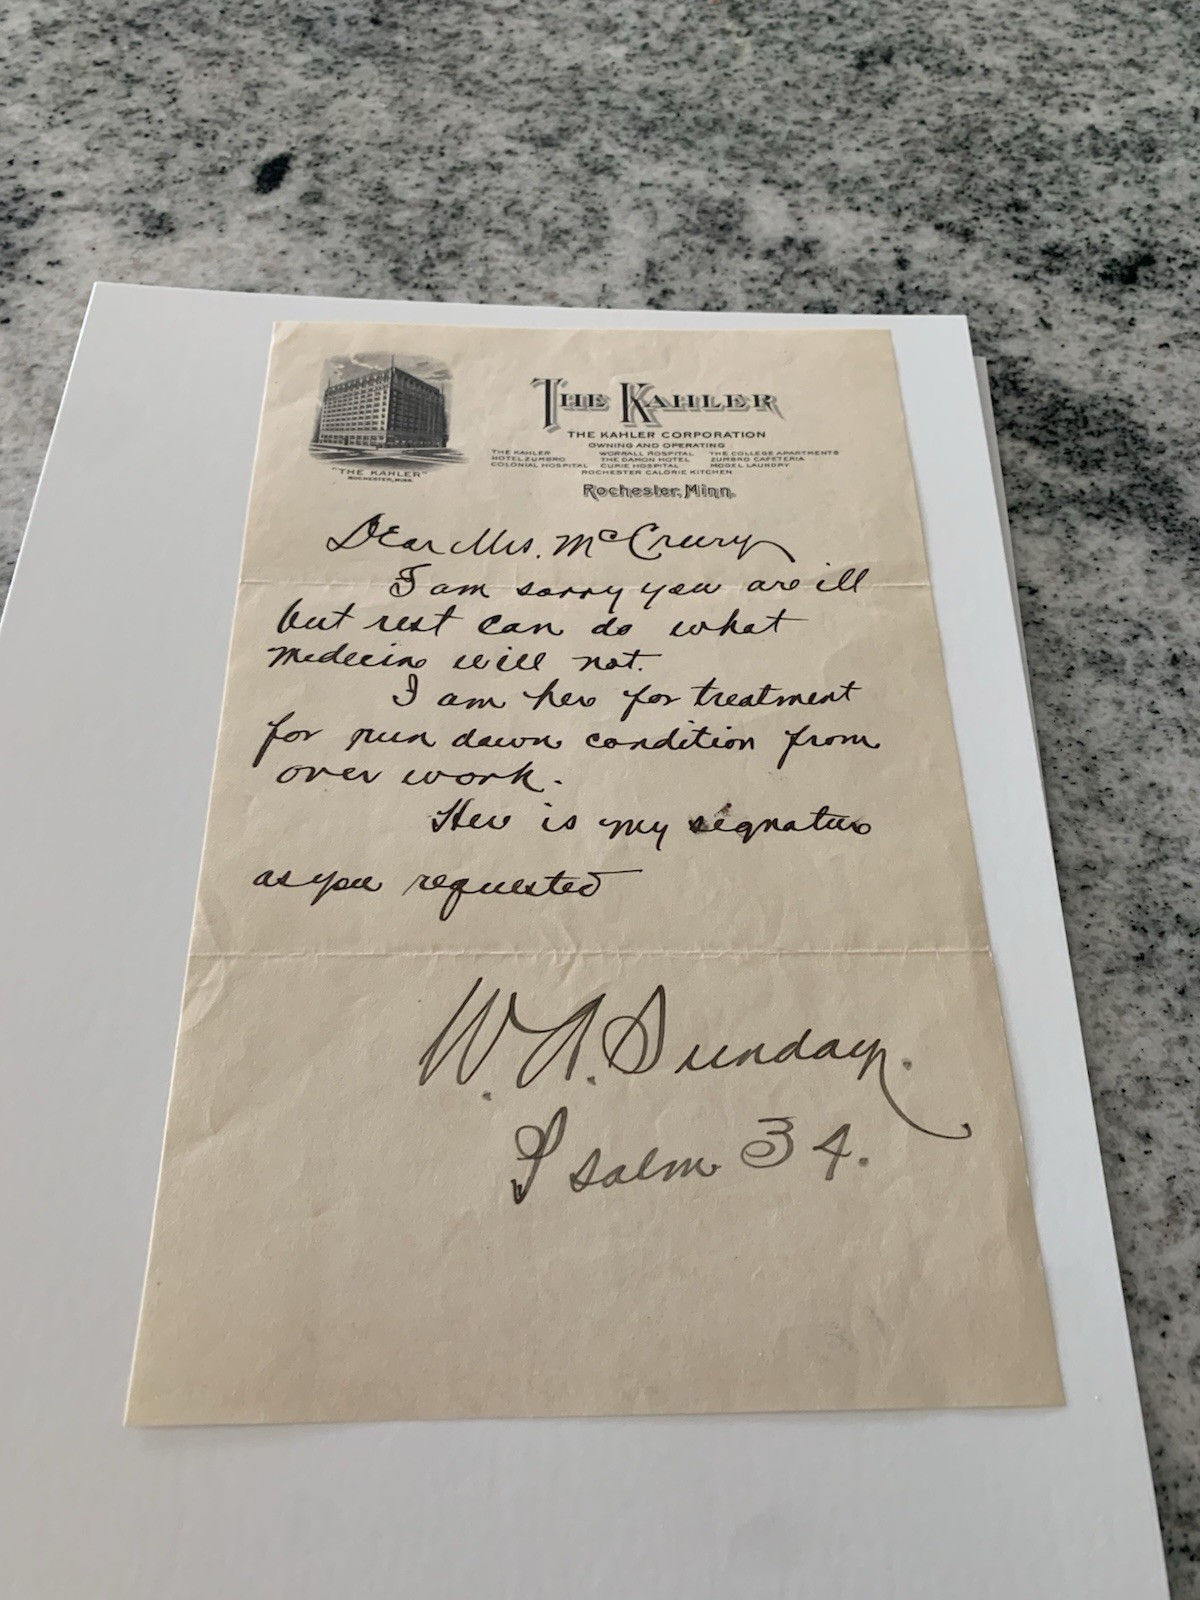 THE KAHLER
THE KAHLER CORPORATION
OWNING AND OPERATING
THE KAHLER WORRALL HOSPITAL THE COLLEGE APARTMENTS
HOTEL ZUMBRO THE DAMON HOTEL ZUMBRO CAFETERIA
COLONIAL HOSPITAL CURIE HOSPITAL MODEL LAUNDRY
ROCHESTER CALORIE KITCHEN
Rochester, Minn.
"THE KAHLER"
ROCHESTER, MINN.
Dear Mrs. McCreury
I am sorry you are ill
but rest can do what
medecine will not.
I am here for treatment
for run down condition from
over work.
Here is my signature
as you requested
W. A. Sunday.
Psalm 34.